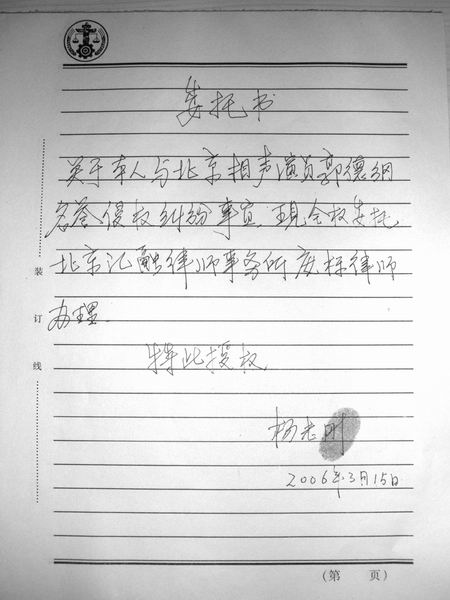 委托书
关于本人与北京相声演员郭德纲
名誉侵权纠纷事宜,现全权委托
北京汇融律师事务所庞标律师
办理.
特此授权
杨志刚
2006年3月15日
装
订
线
(第 页)